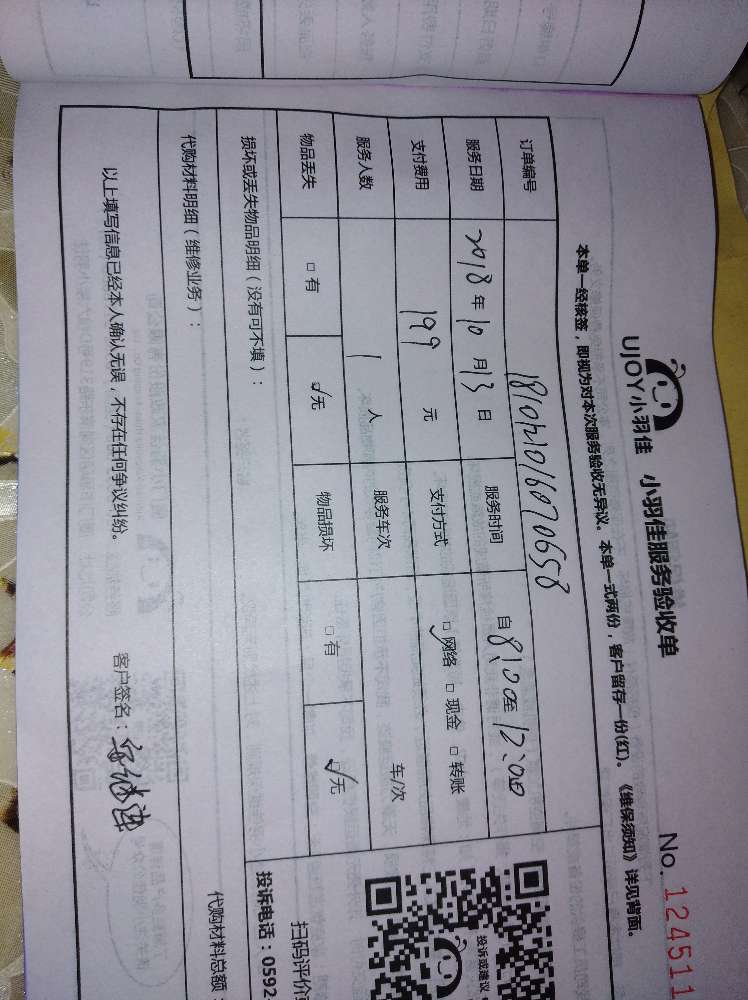 UJOY小羽佳 小羽佳服务验收单 No. 124511
本单一经核签，即视为对本次服务验收无异议。本单一式两份，客户留存一份(红)。《维保须知》详见背面。
订单编号 1810121016070658
服务日期 2018 年 10 月 13 日 服务时间 自 8:00 至 12:00
支付费用 199 元 支付方式 网络 现金 转账
服务人数 1 人 服务车次 车/次
物品丢失 有 无 物品损坏 有 无
损坏或丢失物品明细（没有可不填）：
代购材料明细（维修业务）： 代购材料总额：
以上填写信息已经本人确认无误，不存在任何争议纠纷。 客户签名：
投诉或建议
扫码评价
投诉电话：0592